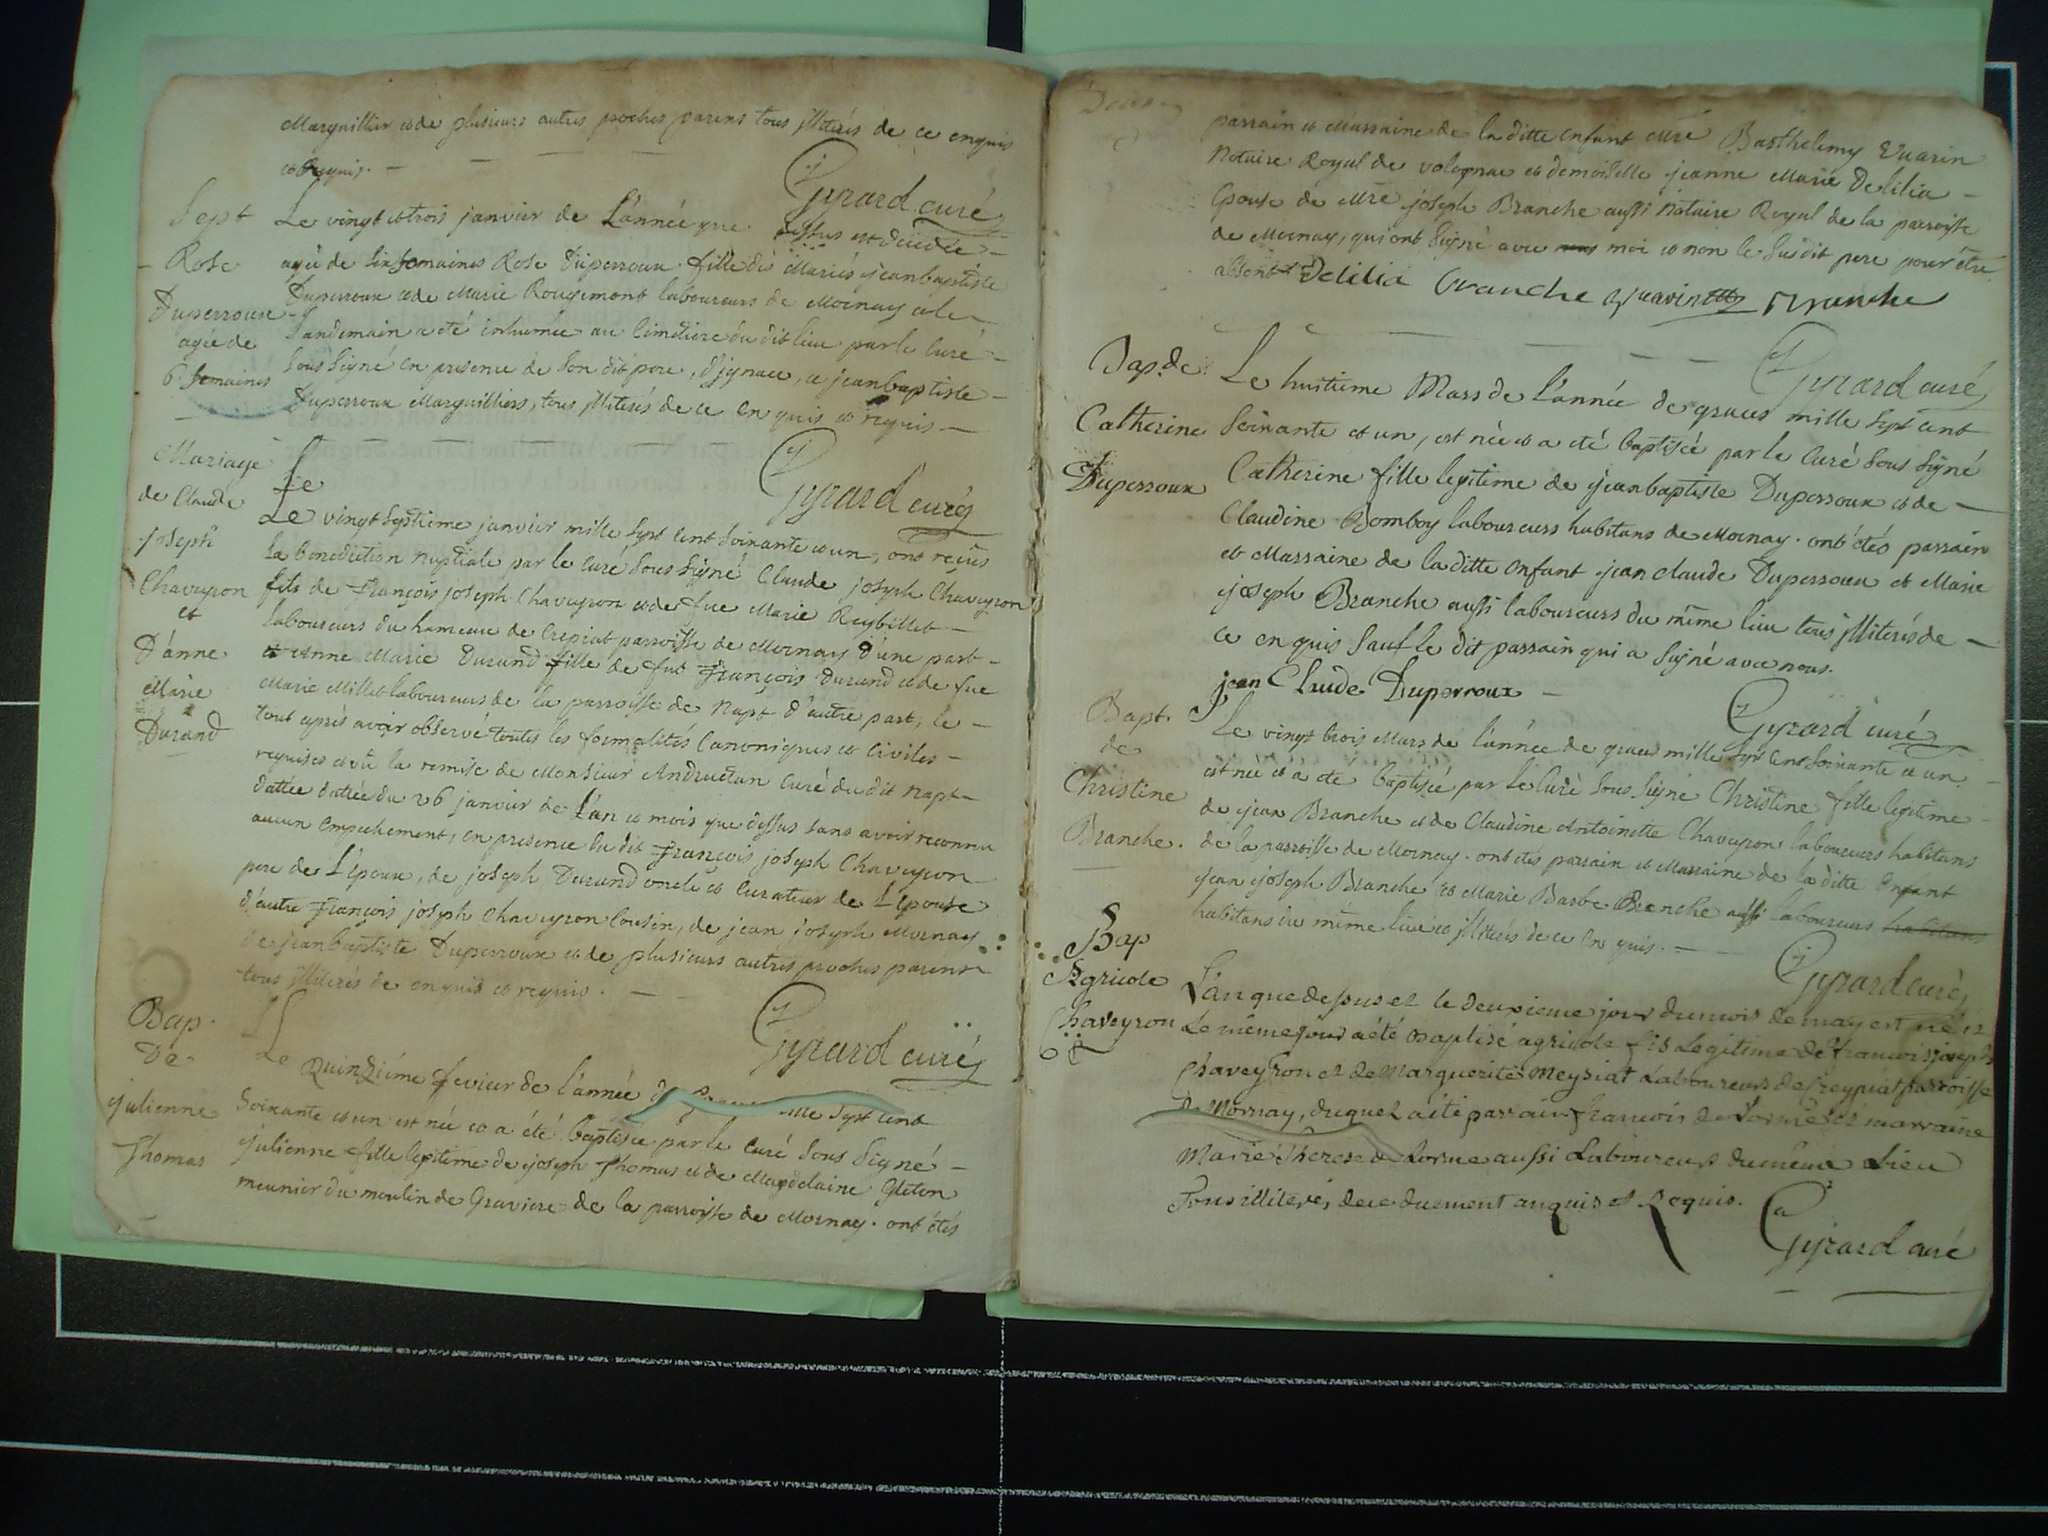 Marguillier et de plusieurs autres proches parens tous illiterés de ce enquis
et requis.
Gyrard curé
Sept
Rose
Duperroux
agée de
6 semaines
Le vingt et trois janvier de l'année que dessus est decedée
agée de six semaines Rose Duperroux fille des Mariés jeanbaptiste
Duperroux et de Marie Rougemont laboureurs de Mornay et le
landemain a été inhumée au Cimetiere du dit lieu par le Curé
sous signé en presence de son dit pere, d'ignace, et jeanbaptiste
Duperroux Marguilliers, tous illiterés de ce en quis et requis.
Gyrard curé
Mariage
de Claude
joseph
Chaveyron
et
D'anne
Marie
Durand
Le
Le vingt septieme janvier mille sept cent soixante et un, ont reçus
la benediction nuptiale par le curé sous signé Claude joseph Chaveyron
fils de François joseph Chaveyron et de fue Marie Reybillet
laboureurs du hameau de Crepiat parroisse de Mornay d'une part
et Anne Marie Durand fille de fut François Durand et de fue
Marie Millet laboureurs de la parroisse de Napt d'autre part, le
tout après avoir observé toutes les formalités Canoniques et Civiles
requises et vû la remise de Monsieur Andruetan Curé du dit Napt
dattée dattée du 26 janvier de L'an et mois que dessus sans avoir reconnu
aucun empechement, en presence du dit François joseph Chaveyron
pere de L'epoux, de joseph Durand oncle et Curateur de L'epouse
d'autre François joseph Chaveyron Cousin, de jean joseph Mornay
de jeanbaptiste Duperroux et de plusieurs autres proches parens
tous illiterés de enquis et requis.
Gyrard curé
Bap.
De
julienne
Thomas
Le quinziéme fevrier de l'année de mille sept cent
soixante et un est née et a été baptisée par le Curé sous signé
julienne fille legitime de joseph Thomas et de Magdelaine Gleton
meunier du moulin de Graviere de la parroisse de Mornay. ont étés
parrain et Marraine de la ditte enfant Mre Barthelemy Evarin
Notaire Royal de volognac et demoiselle jeanne Marie Delilia
Epouse de Mre joseph Branche aussi Notaire Royal de la parroisse
de Mornay, qui ont signé avec nous moi et non le susdit pere pour être
absent Delilia Branche Evarin Branche
Gyrard curé
Bap. de
Catherine
Duperroux
Le huitieme Mars de L'année de graces mille sept cent
soixante et un, est née et a été baptisée par le Curé sous signé
Catherine fille legitime de jeanbaptiste Duperroux et de
Claudine Bomboy laboureurs habitans de Mornay. ont étés parrain
et Marraine de la ditte enfant jean claude Duperroux et Marie
joseph Branche aussi laboureurs du même lieu tous illiterés de
ce en quis sauf le dit parrain qui a signé avec nous.
jean Claude Duperroux
Gyrard curé
Bapt.
de
Christine
Branche.
Le vingt trois Mars de l'année de graces mille sept cent soixante et un
est née et a été baptisée par le Curé sous signé Christine fille legitime
de jean Branche et de Claudine Antoinette Chaveyron laboureurs habitans
de la parroisse de Mornay. ont étés parrain et Marraine de la ditte enfant
jean joseph Branche et Marie Barbe Branche aussi laboureurs habitans
habitans du même lieu et illiterés de ce en quis.
Gyrard curé
Bap
Agricole
Chaveyron
L'an que dessus et le deuxieme jour du mois de may est né et
Le même jour a été Baptisé agricole fis Legitime de francois joseph
Chaveyron et de Marguerite Meysiat Laboureurs de Creypiat parroisse
de Mornay, duquel a été parrain francois de Lorme et marraine
Marie Therese de Lorme aussi Laboureurs du même Lieu
Tous illiterés de ce duement anquis et Requis.
Gyrard curé